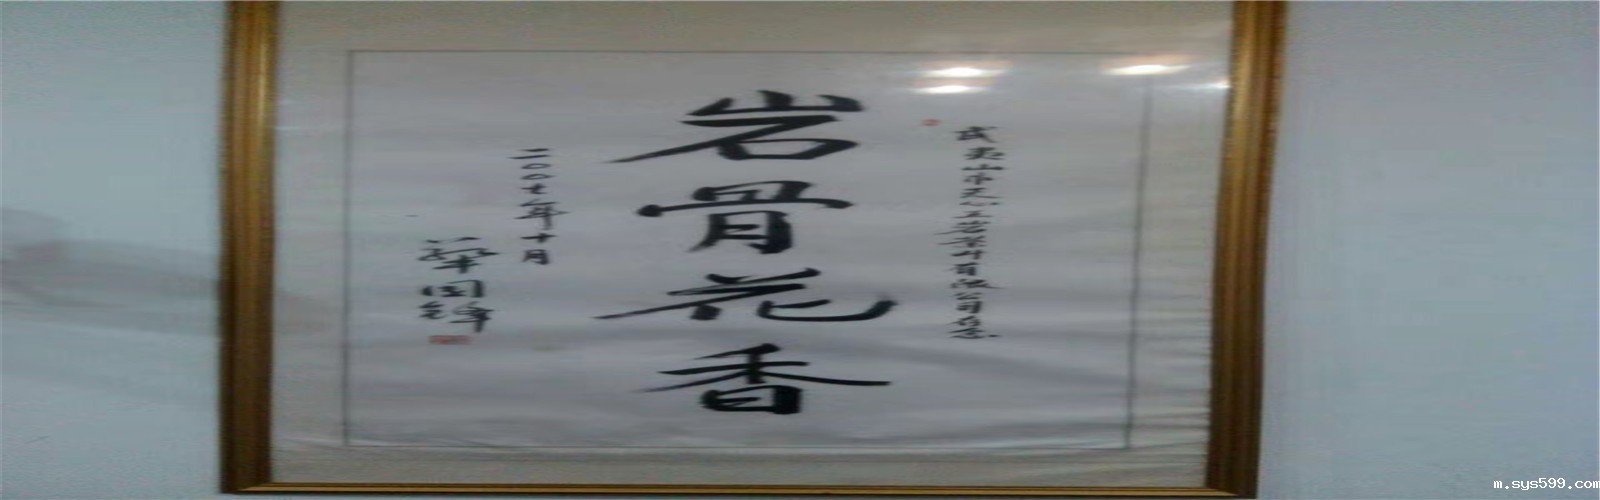 武夷山市天心工营茶叶有限公司存念
岩骨花香
二〇〇七年十月
華国锋
m.sys599.com